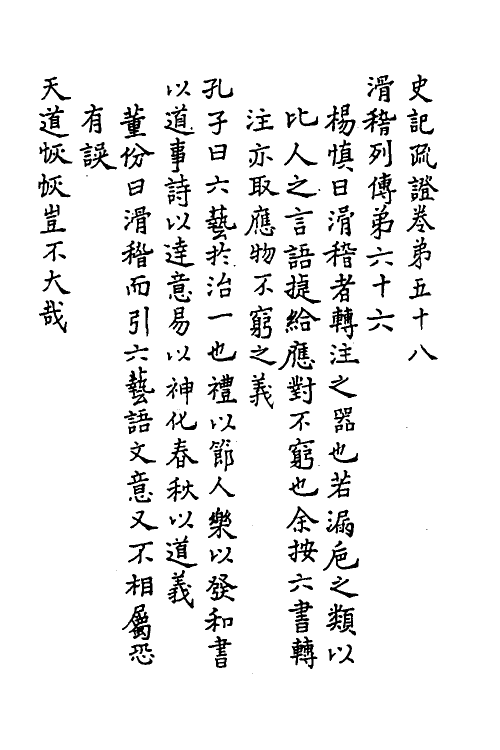 史記疏證卷弟五十八
滑稽列傳弟六十六
楊慎曰滑稽者轉注之器也若漏巵之類以
比人之言語㨗給應對不窮也余按六書轉
注亦取應物不窮之義
孔子曰六藝扵治一也禮以節人樂以發和書
以道事詩以達意易以神化春秋以道義
董份曰滑稽而引六藝語文意又不相屬恐
有誤
天道恢恢豈不大哉